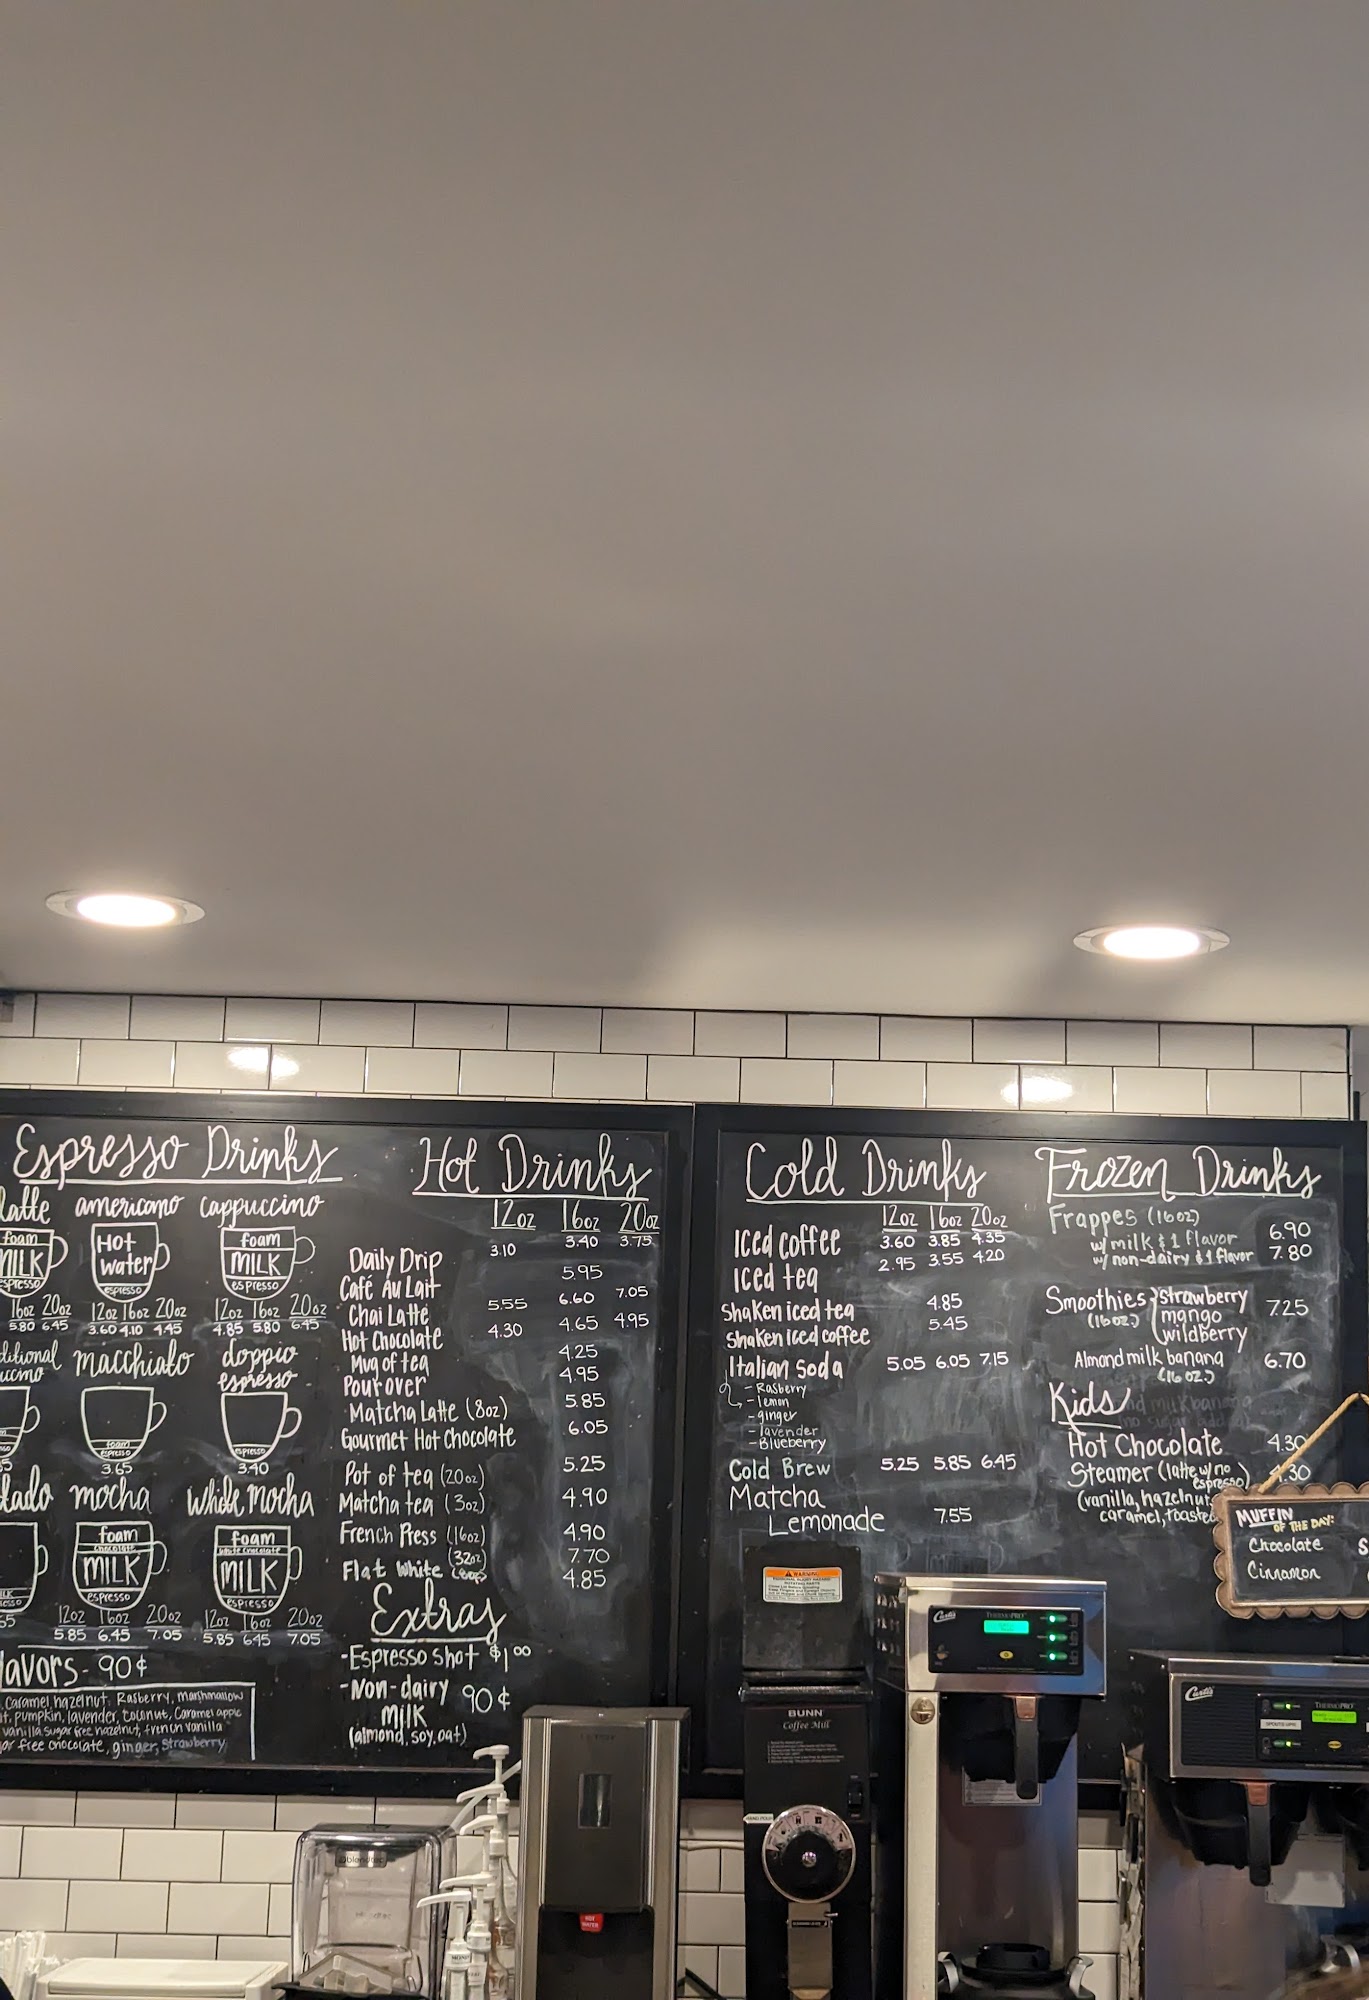 Espresso Drinks
latte americano cappuccino
foam
MILK
espresso
Hot
water
espresso
foam
MILK
espresso
16oz 20oz
5.80 6.45
12oz 16oz 20oz
3.60 4.10 4.45
12oz 16oz 20oz
4.85 5.80 6.45
macchiato doppio
espresso
foam
espresso
3.65
espresso
3.40
mocha white mocha
foam
chocolate
MILK
espresso
foam
white chocolate
MILK
espresso
12oz 16oz 20oz
5.85 6.45 7.05
12oz 16oz 20oz
5.85 6.45 7.05
lavors - 90¢
caramel, hazelnut, Rasberry, marshmallow
pumpkin, lavender, coconut, Caramel apple
vanilla sugar free hazelnut, french vanilla
free chocolate, ginger, strawberry
Hot Drinks
12oz 16oz 20oz
Daily Drip 3.10 3.40 3.75
Café Au Lait 5.95
Chai Latte 5.55 6.60 7.05
Hot Chocolate 4.30 4.65 4.95
Mug of tea 4.25
Pour over 4.95
Matcha Latte (8oz) 5.85
Gourmet Hot Chocolate 6.05
Pot of tea (20oz) 5.25
Matcha tea (3oz) 4.90
French Press (16oz) 4.90
(32oz) 7.70
Flat White 4.85
Extras
- Espresso shot $1.00
- Non-dairy
milk 90¢
(almond, soy, oat)
Cold Drinks
12oz 16oz 20oz
Iced coffee 3.60 3.85 4.35
Iced tea 2.95 3.55 4.20
Shaken iced tea 4.85
Shaken iced coffee 5.45
Italian soda 5.05 6.05 7.15
- Rasberry
- lemon
- ginger
- lavender
- Blueberry
Cold Brew 5.25 5.85 6.45
Matcha
Lemonade 7.55
Frozen Drinks
Frappes (16oz)
w/ milk & 1 flavor 6.90
w/ non-dairy & 1 flavor 7.80
Smoothies strawberry
(16oz) mango 7.25
wildberry
Almond milk banana 6.70
(16oz)
Kids
Hot Chocolate 4.30
Steamer (latte w/ no 4.30
espresso)
(vanilla, hazelnut
caramel, toasted
MUFFIN
OF THE DAY:
Chocolate
Cinnamon
WARNING
Curtis THERMOPRO
BUNN
Coffee Mill
Curtis THERMOPRO
blendtec
HOT
WATER